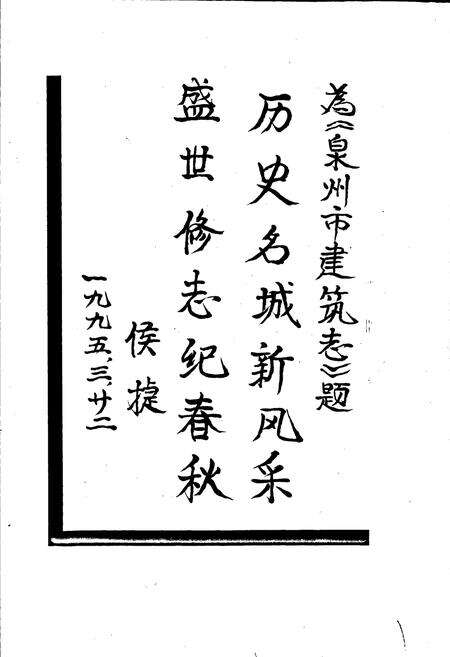 为《泉州市建筑志》题
历史名城新风采
盛世修志纪春秋
侯捷
一九九五、三、廿二